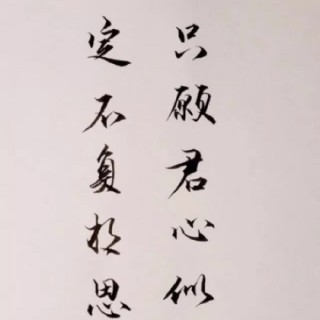 只愿君心似
定不负相思